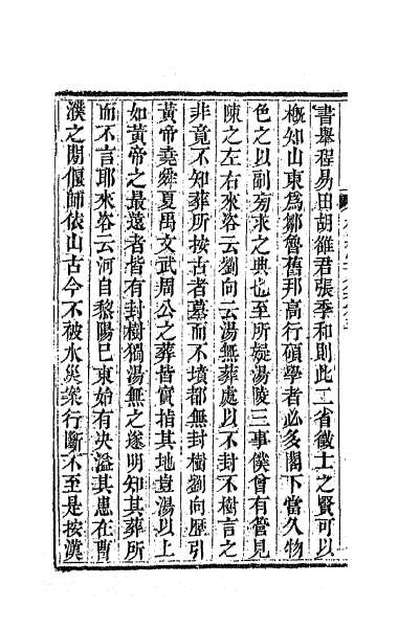 書舉程易田胡雒君張季和則此二省徵士之賢可以
槪知山東爲鄒魯舊邦高行碩學者必多閣下當久物
色之以副旁求之典也至所疑湯陵三事僕曾有管見
陳之左右來咨云劉向云湯無葬處以不封不樹言之
非竟不知葬所按古者墓而不墳都無封樹劉向歷引
黃帝堯舜夏禹文武周公之葬皆實指其地豈湯以上
如黃帝之最遠者皆有封樹獨湯無之遂明知其葬所
而不言耶來咨云河自黎陽巳東始有決溢其患在曹
濮之閒偃師依山古今不被水災㯫行斷不至是按漢